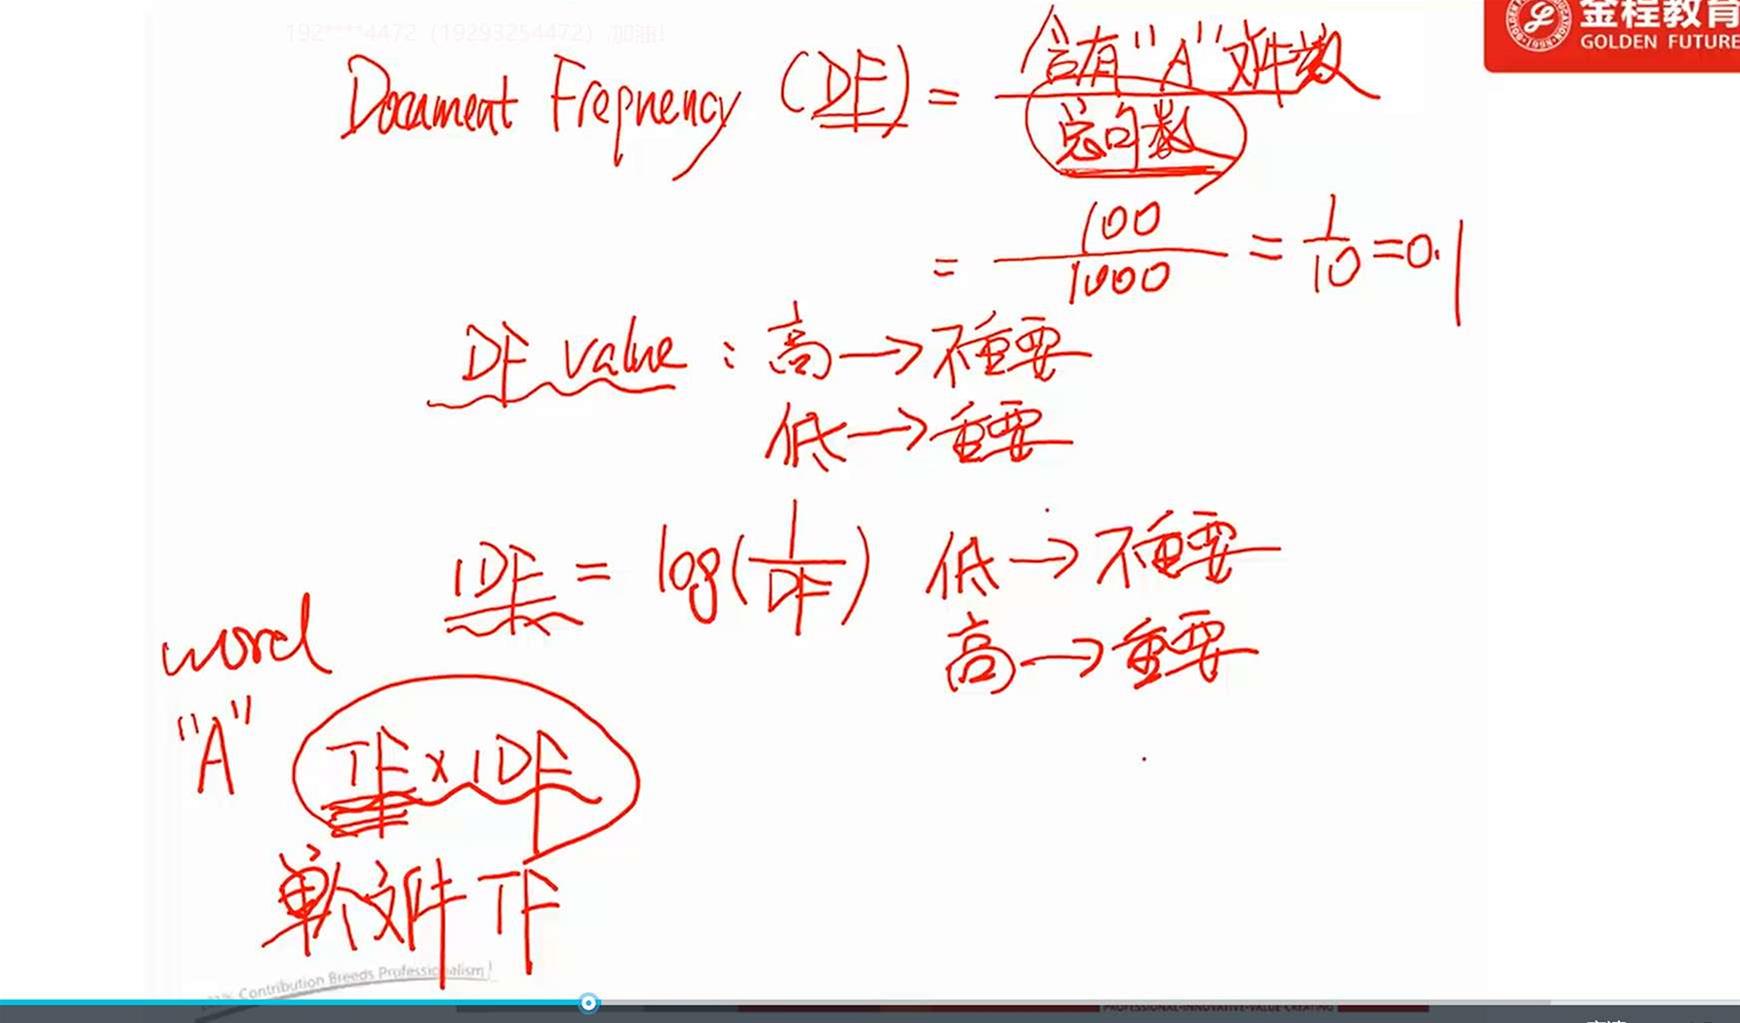 192****4472（19293254472）加油!
金程教育
GOLDEN FUTURE
Document Frequency (DF) = 含有"A"文件数
总句数
= 100/1000 = 1/10 = 0.1
DF value : 高→不重要
低→重要
IDF = log(1/DF) 低→不重要
高→重要
word
"A"
TF x IDF
单个文件 TF
Contribution Breeds Professionalism!
PROFESSIONAL·INNOVATIVE·VALUE CREATING